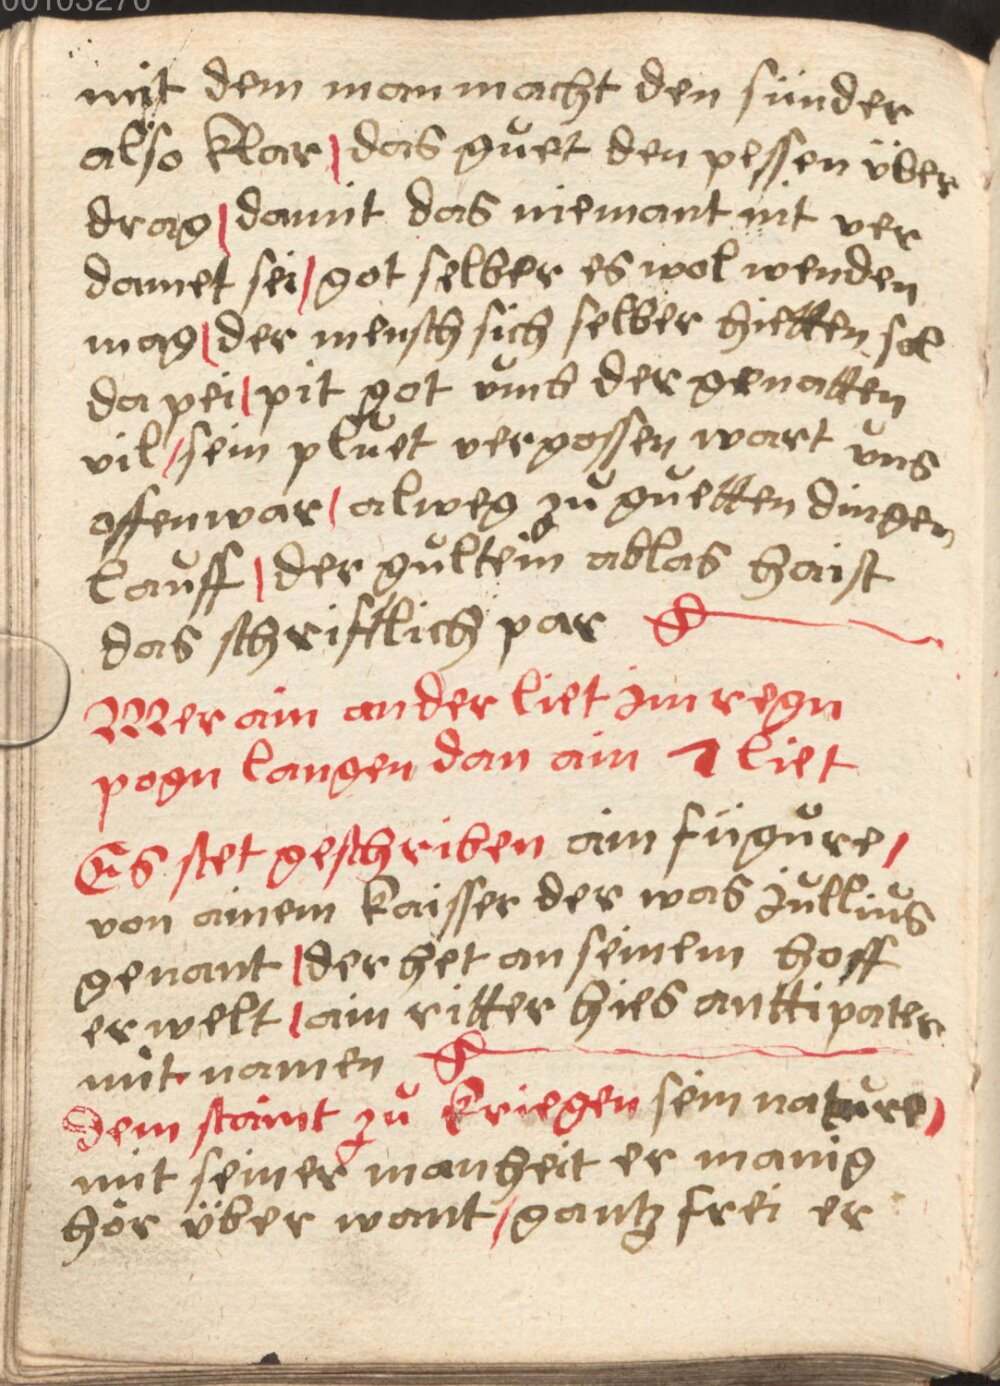 00103270
mit dem man macht den sünder
also klar / das guet den pessen über
drag / damit das niemant nit ver
damet sei / got selber es wol wenden
mag / der mensch sich selber hietten sol
da pei / pit got vmb der genatten
vil / sein pluet vergossen wart vns
offenwar / alweg zu guetten dingen
lauff / der gultein ablas haist
das schrifftlich par
Mer ain ander liet im regn
pogn langen dan ain 7 liet
Es stet geschriben ain fügure /
von ainem kaisser der was Jullius
genant / der het an seinem hoff
er welt / ain ritter hies anttipater
mit namen
Dem staint zu kriegen sein nature /
mit seiner manheit er manig
hör über want / gantz frei er